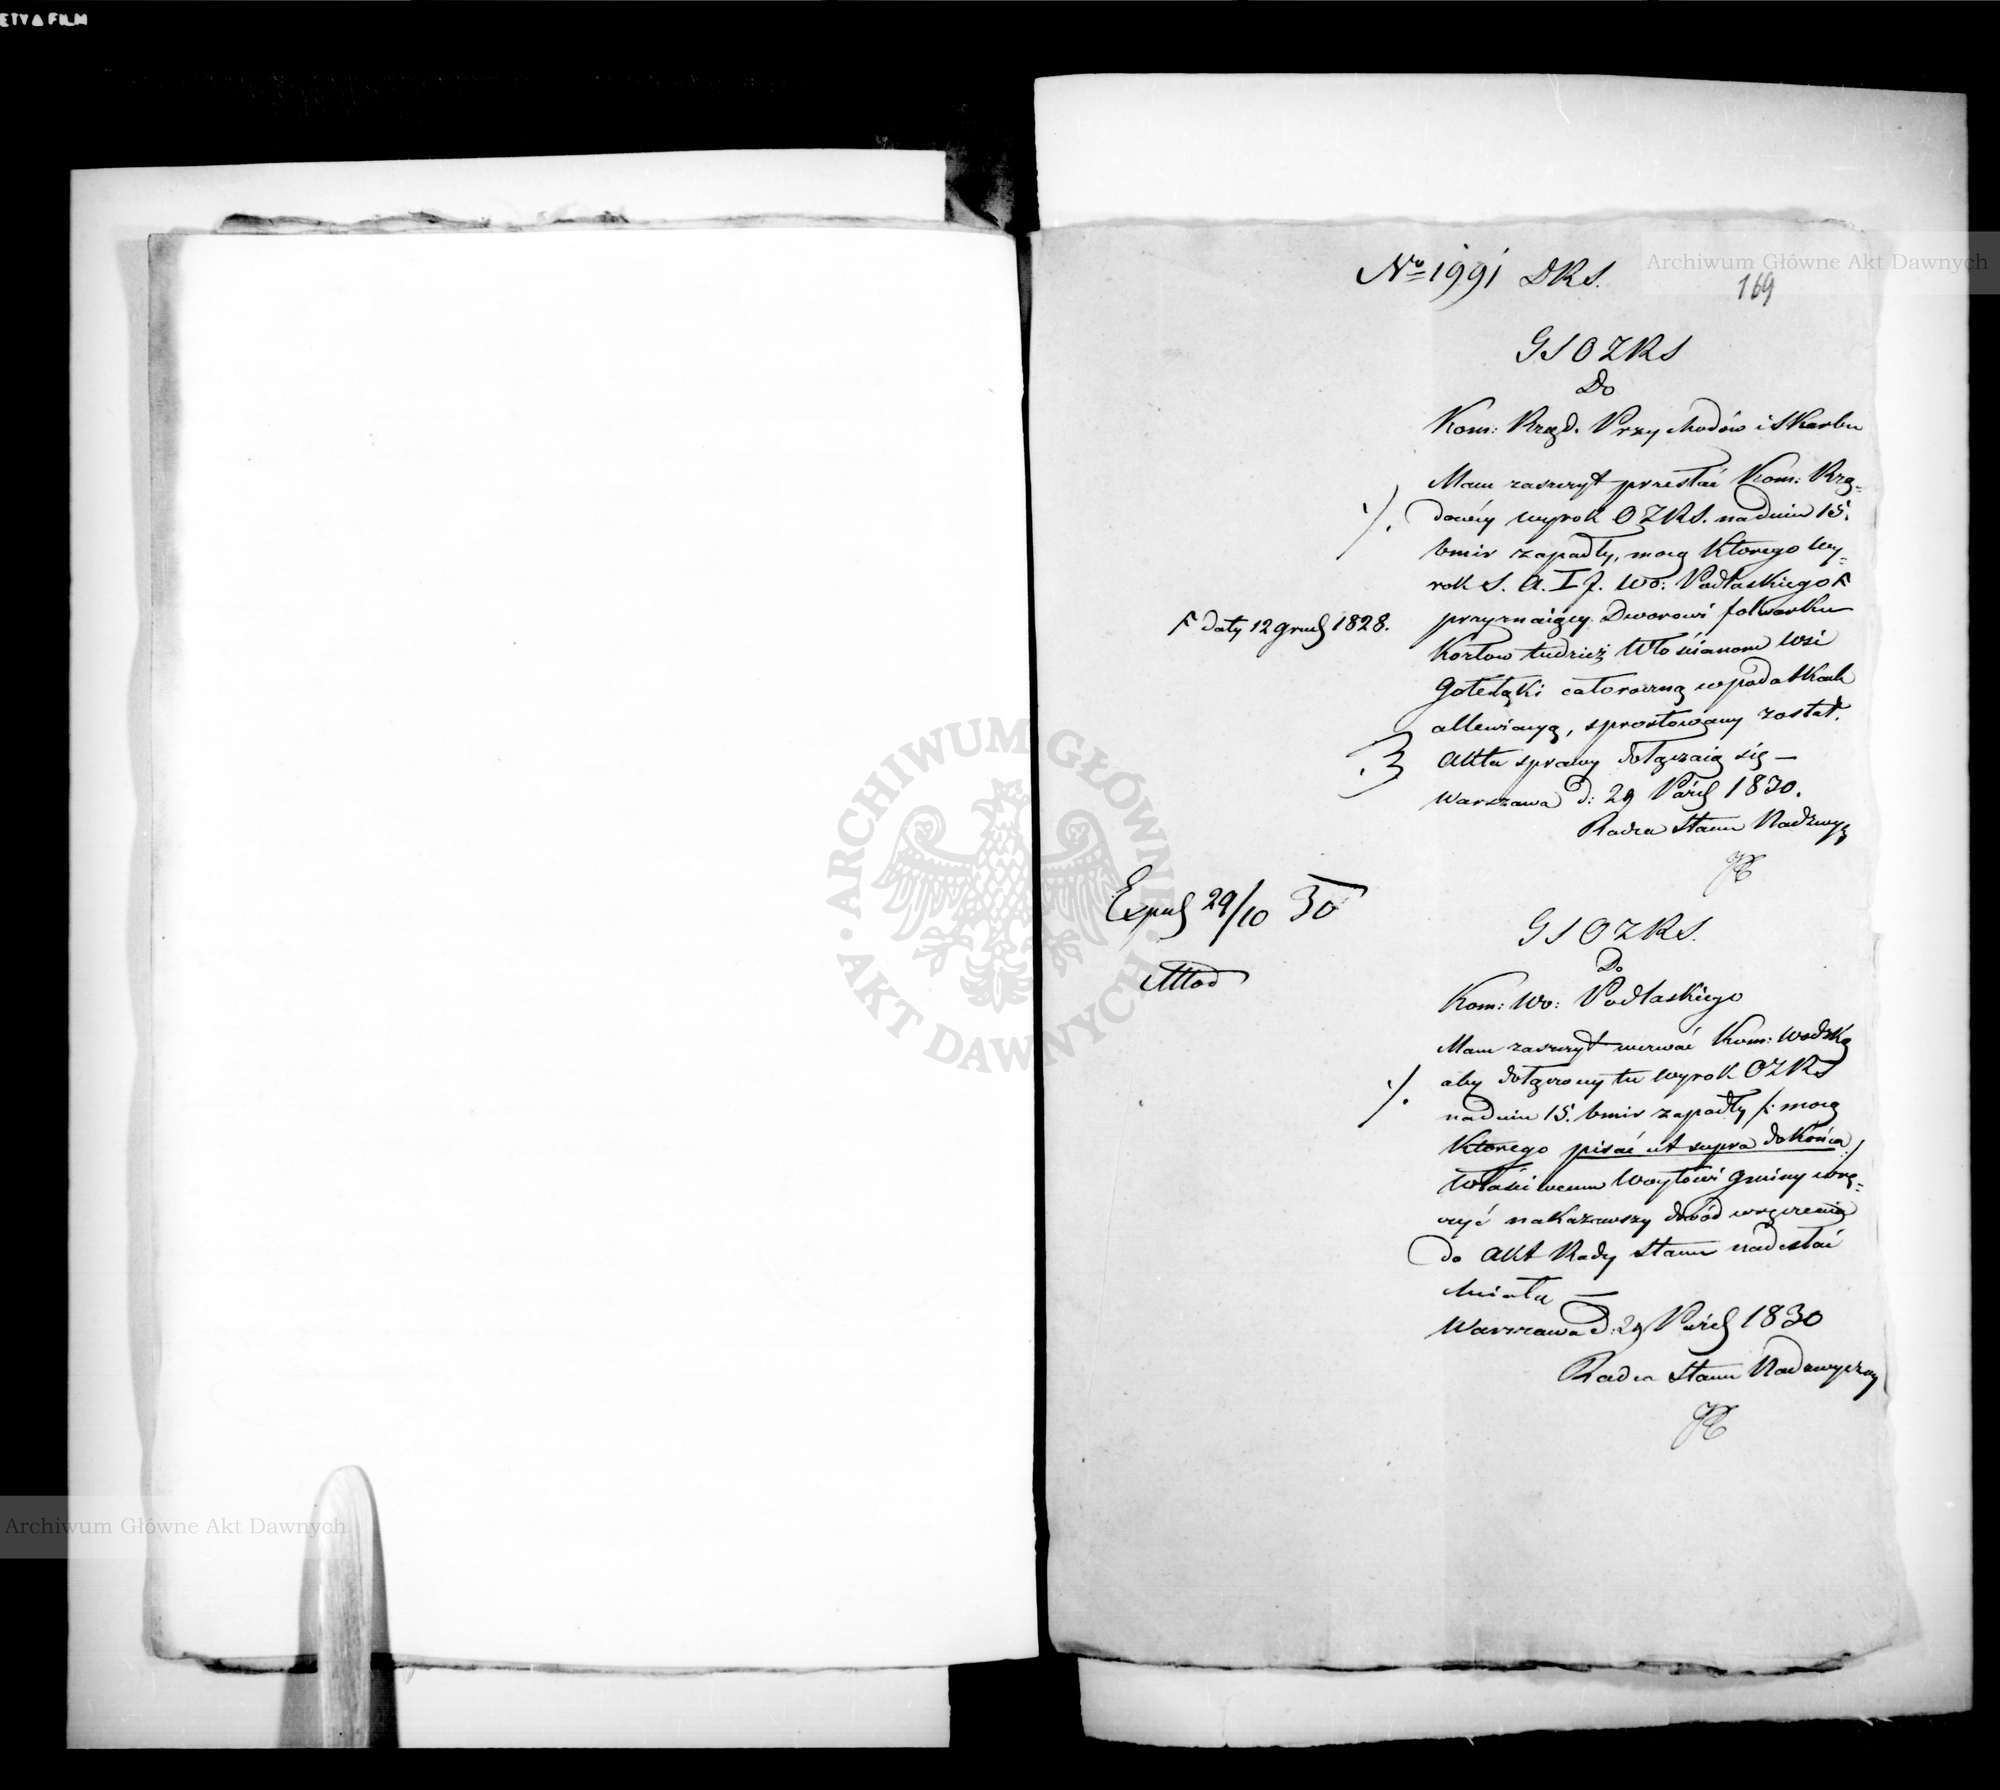 No 1991 DRS.
169
GSOZRS
Do
Kom: Rząd. Przychodów i Skarbu
Mam zaszczyt przesłać Kom: Rzą=
dowéy wyrok OZRS. na dniu 15.
bmir zapadły, mocą którego wy=
rok S. A. I J. Wo: Podlaskiego F
F daty 12 grud 1828.
przyznaiący Dworowi folwarku
Kozłow tudzież Włościanom wsi
Gołełąki całoroczną w podatkach
allewiacyą, sprostowany został.
Akta sprawy dołączaią się —
Warszawa d: 29 Paźd 1830.
Radca Stanu Nadzwy
Exped 29/10 30
GSOZRS.
Do
Kom: Wo: Podlaskiego
Mam zaszczyt wezwać Kom: Wodzką
aby dołączony tu wyrok OZRS
na dniu 15. bmir zapadły /: mocą
którego pisać ut supra do końca :/
właściwemu Woytowi gminy wrę=
czyć nakazawszy dowód wręczenia
do Akt Rady Stanu nadesłać
chciała —
Warszawa d: 29 Paźd 1830
Radca Stanu Nadzwyczay
Archiwum Główne Akt Dawnych
ARCHIWUM GŁÓWNE · AKT DAWNYCH ·
Archiwum Główne Akt Dawnych